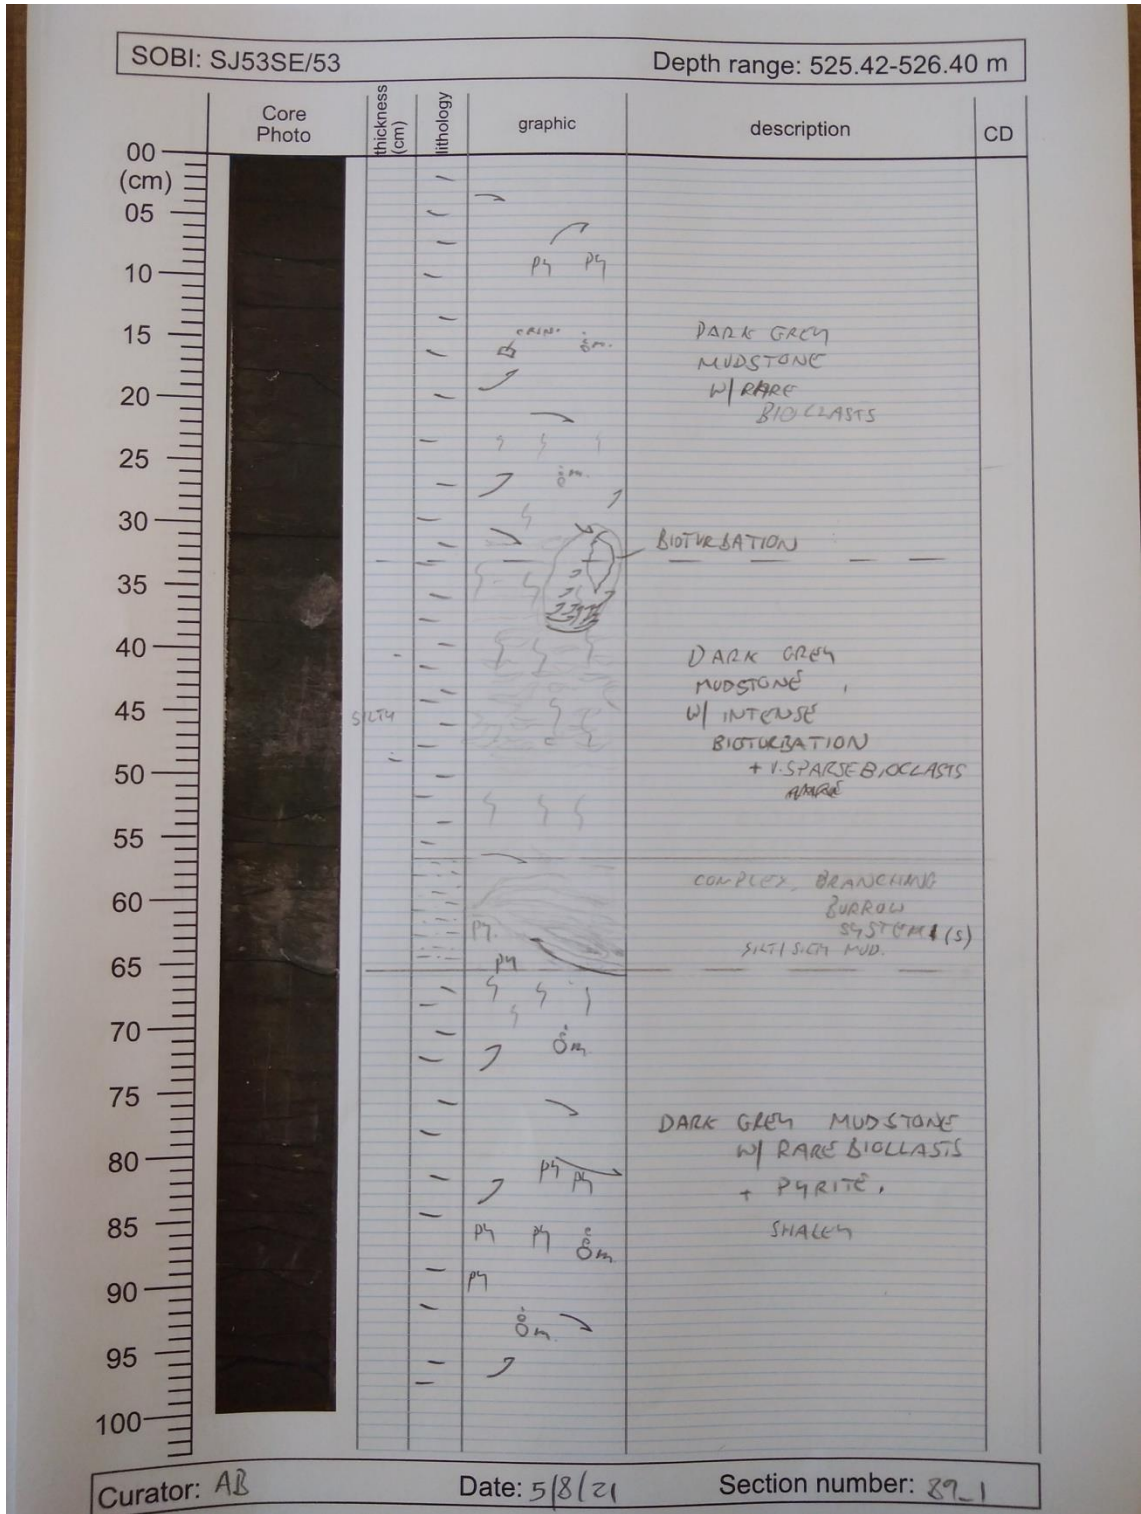 SOBI: SJ53SE/53
Depth range: 525.42-526.40 m
Core
Photo
thickness
(cm)
lithology
graphic
description
CD
00
(cm)
05
10
15
20
25
30
35
40
45
50
55
60
65
70
75
80
85
90
95
100
py py
CRIN. m.
DARK GREY
MUDSTONE
W/ RARE
BIOCLASTS
m.
BIOTURBATION
DARK GREY
MUDSTONE,
W/ INTENSE
SILTY
BIOTURBATION
+ V. SPARSE BIOCLASTS
COMPLEX, BRANCHING
BURROW
SYSTEM (S)
py.
py
m
DARK GREY MUDSTONE
W/ RARE BIOCLASTS
py py
+ PYRITE,
SHALEY
py py m
py
m.
Curator: AB
Date: 5/8/21
Section number: 89_1